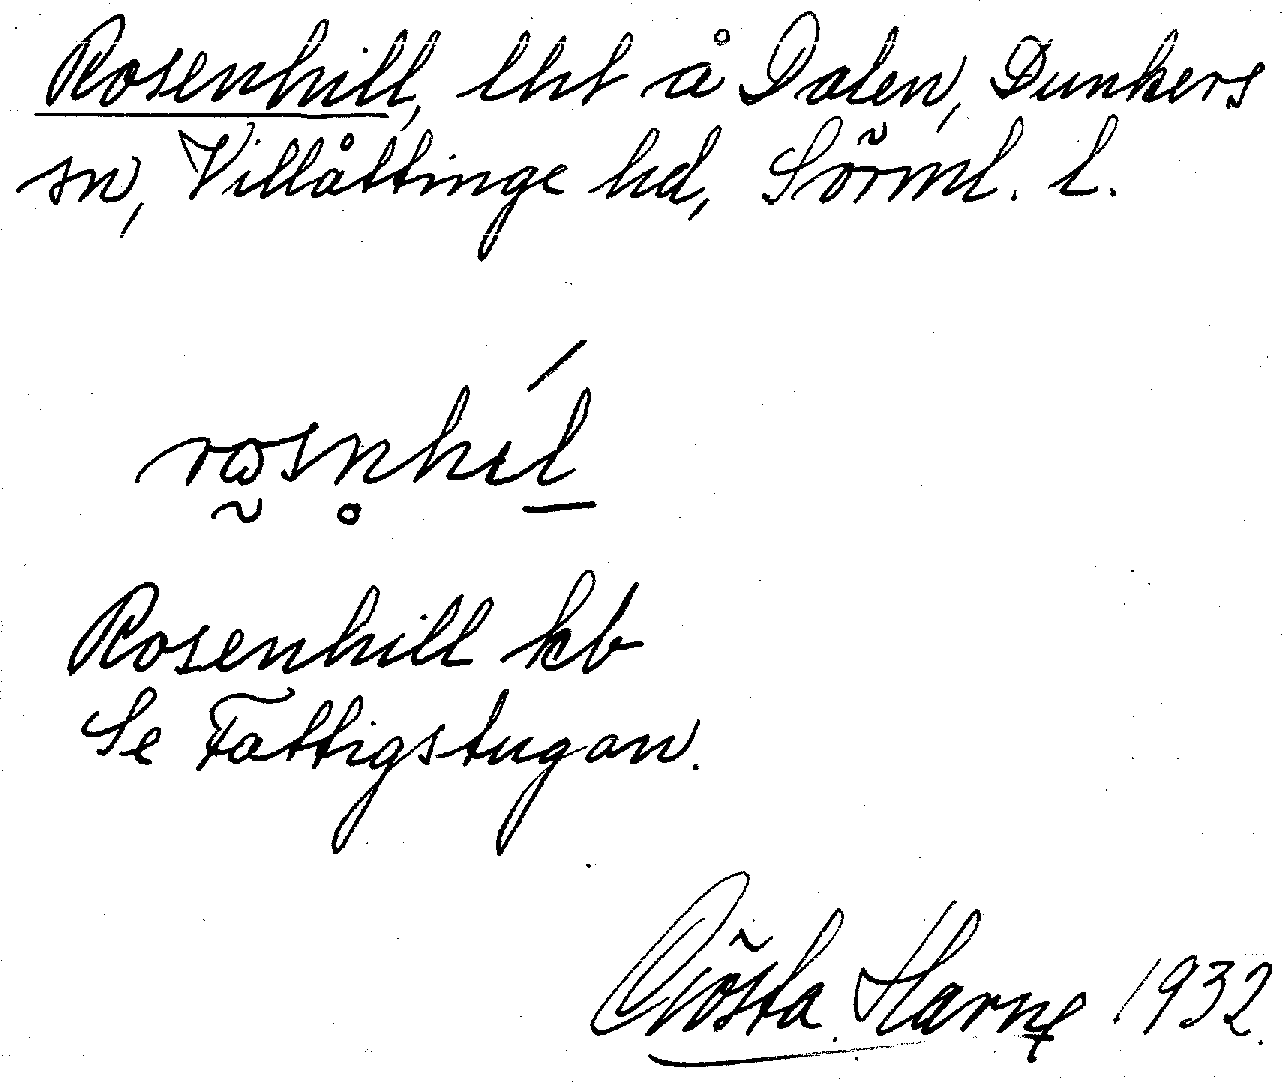 Rosenhill, lht å Dalen, Dunkers
sn, Villåttinge hd, Sörml. l.
Rosenhill kb
Se Fattigstugan.
Gösta 1932.